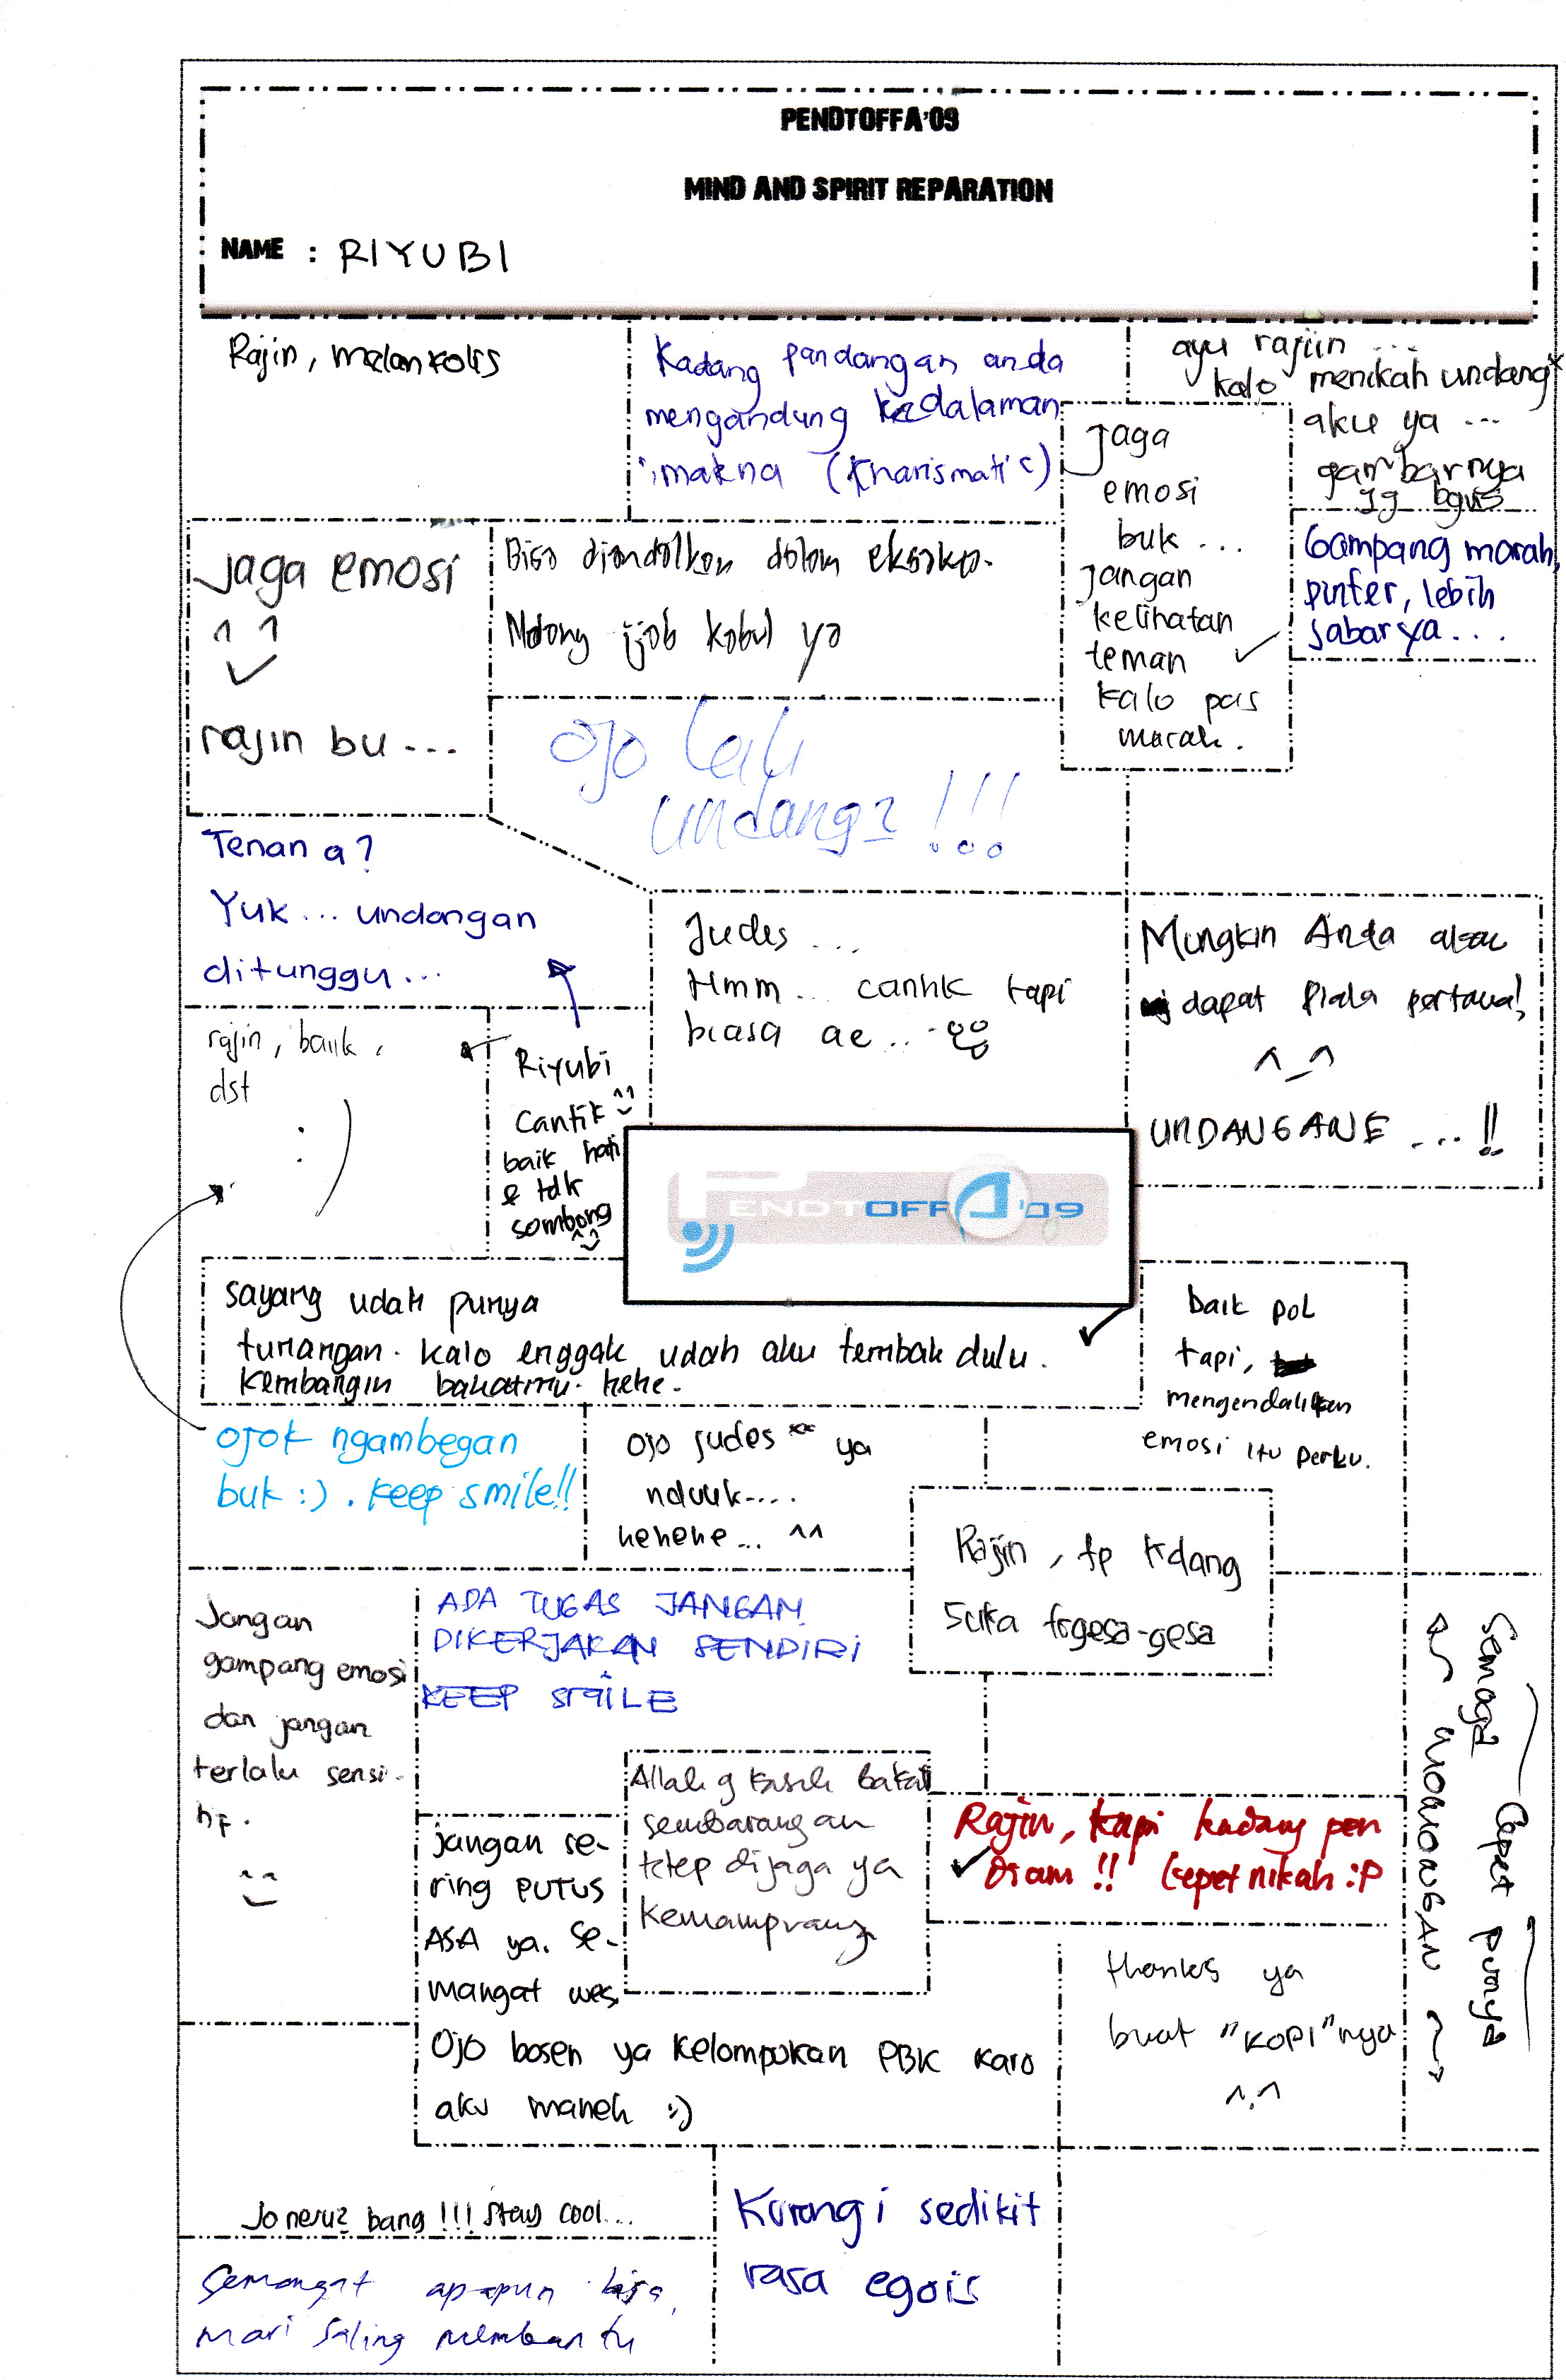 PENDTOFFA'09
MIND AND SPIRIT REPARATION
NAME : RIYUBI
Rajin, melankolis
Kadang pandangan anda
mengandung kedalaman
makna (kharismatic)
ayu rajiin ...
kalo menikah undang"
aku ya ...
gambarnya
jg bgus
jaga
emosi
buk ...
jangan
kelihatan
teman
kalo pas
marah.
Gampang marah,
pinter, lebih
sabar ya...
jaga emosi
^ ^
rajin bu ...
Bisa diandalkan dalam
ijob kabul ya
Ojo lali
undang2 !!!
Tenan a?
Yuk... undangan
ditunggu...
Judes ...
Hmm... cantik tapi
biasa ae...
Mungkin Anda akan
dapat piala pertama!
^_^
UNDANGANE ...!!
rajin, baiik,
dst
:)
Riyubi
Cantik ^^
baik hati
& tdk
sombong
^^
PENDTOFFA'09
sayang udah punya
tunangan. kalo enggak udah aku tembak dulu.
kembangin bakatmu. hehe.
baik pol
tapi,
mengendalikan
emosi itu perlu.
ojok ngambegan
buk :) . keep smile!!
ojo judes** ya
nduuk....
hehehe... ^^
Rajin, tp kdang
suka trgesa-gesa
Jangan
gampang emosi
dan jangan
terlalu sensi-
tif.
ADA TUGAS JANGAN
DIKERJAKAN SENDIRI
KEEP SMILE
Semoga Cepet punya
MOMONGAN
Allah g kasih bakat
sembarangan
tetep dijaga ya
kemampuang
Rajin, tapi kadang pen
Diam !! Cepet nikah :P
jangan se-
ring PUTUS
ASA ya. Se-
mangat wes
thanks ya
buat "KOPI"nya
^.^
Ojo bosen ya kelompokan PBK karo
aku maneh :)
Joneruz bang !!! stay cool...
Kurangi sedikit
rasa egois
Semangat apapun bisa,
mari saling membantu